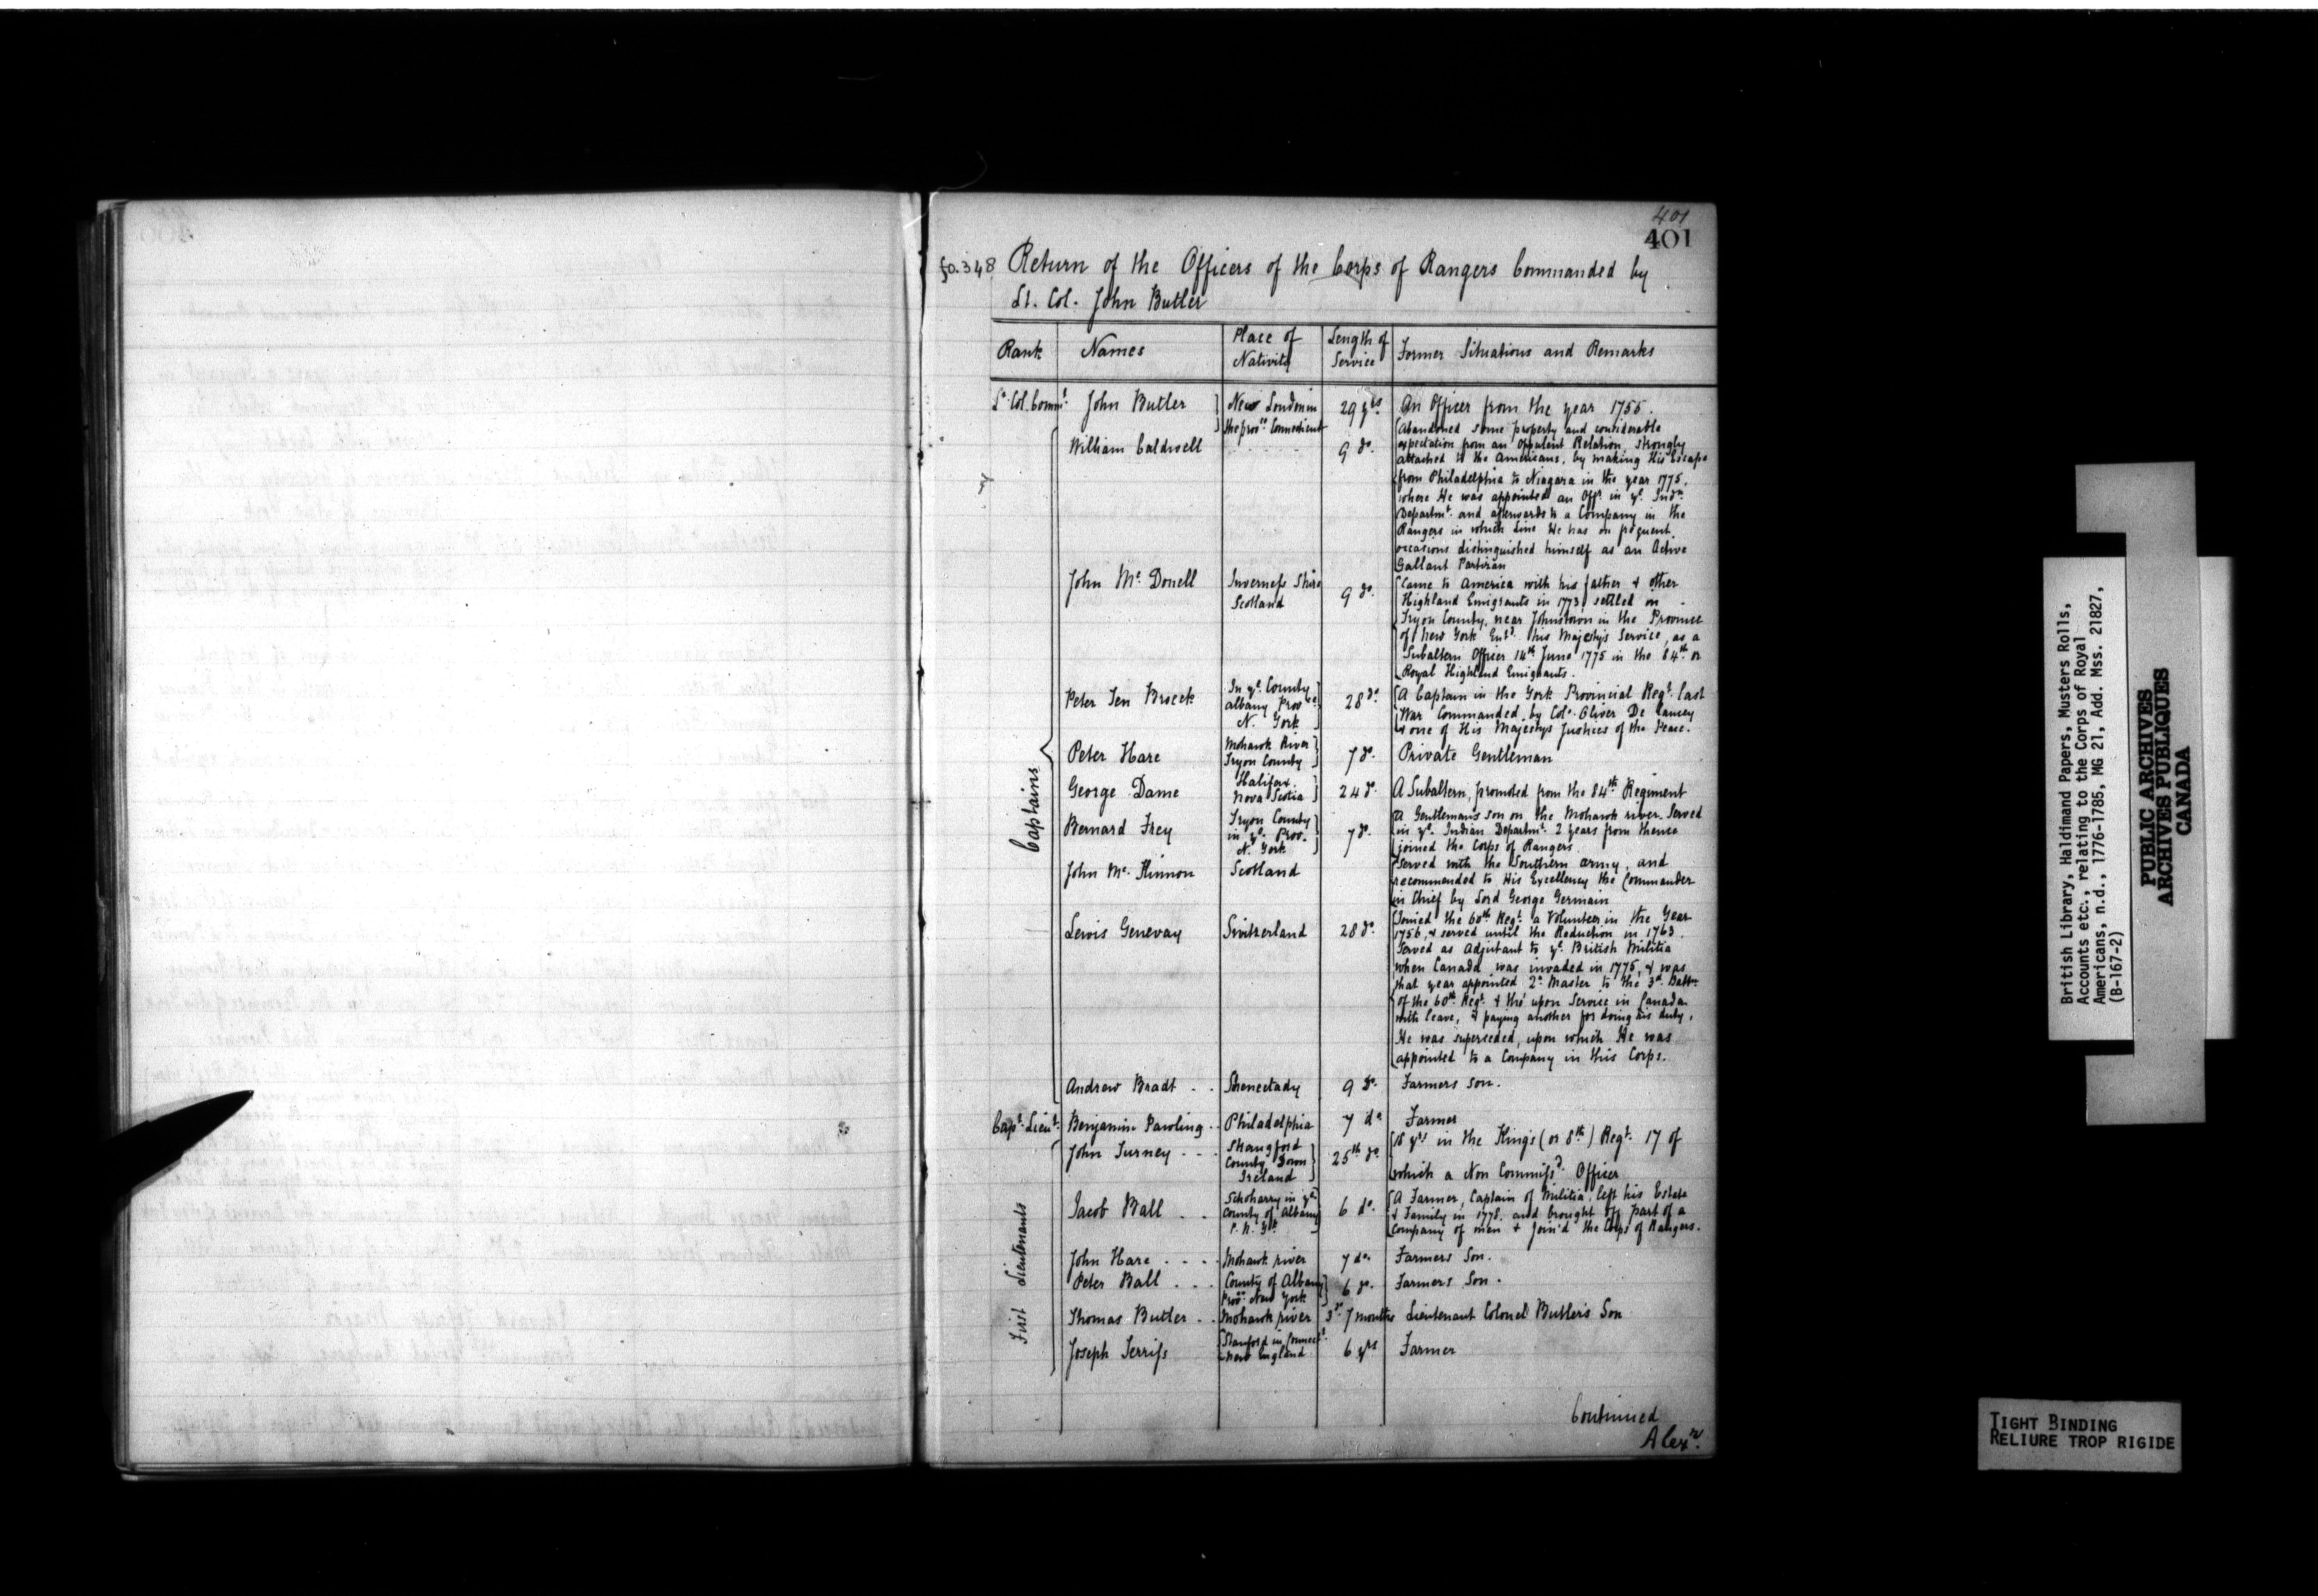 401
401
fo. 348 Return of the Officers of the Corps of Rangers Commanded by
Lt. Col. John Butler
Rank Names Place of Nativity Length of Service Former Situations and Remarks
Lt. Col. Commt. John Butler New London in the provce Connecticut 29 yrs. An Officer from the year 1755.
Captains
William Caldwell 9 do. Abandoned some property and considerable
expectation from an Oppulent Relation, strongly
attached to the Americans, by making His Escape
from Philadelphia to Niagara in the year 1775,
where He was appointed an Offr. in ye. Indn.
Departmt. and afterwards to a Company in the
Rangers in which Line He has on frequent
occasions distinguished himself as an Active
Gallant Partizan
John Mc. Donell Inverness Shire Scotland 9 do. Came to America with his father & other
Highland Emigrants in 1773, settled on
Tryon County, near Johnstown in the Province
of New York Entd. his Majestys Service, as a
Subaltern Officer 14th June 1775 in the 84th or
Royal Highland Emigrants.
Peter Ten Broeck In ye. County Albany Provce N. York 28 do A Captain in the York Provincial Regt. last
War Commanded by Colo. Oliver De Lancey
& one of His Majestys Justices of the Peace.
Peter Hare Mohawk River Tryon County 7 do. Private Gentleman
George Dame Halifax Nova Scotia 24 do. A Subaltern, promoted from the 84th Regiment
Bernard Frey Tryon County in ye. Prov. N. York 7 do. A Gentlemans son on the Mohawk river. Served
in ye. Indian Departmt. 2 years from thence
joined the Corps of Rangers
John Mc. Kinnon Scotland Served with the Southern army, and
recommended to His Excellency the Commander
in Chief by Lord George Germain
Lewis Genevay Switzerland 28 do. Joined the 60th Regt. a Volunteer in the Year
1756, & served until the Reduction in 1763.
Served as Adjutant to ye. British Militia
when Canada was invaded in 1775, & was
that year appointed Qr. Master to the 3d. Battn
of the 60th Regt. & tho' upon Service in Canada
with leave, & paying another for doing his duty,
He was superseded, upon which He was
appointed to a Company in this Corps.
Andrew Bradt . . Shenectady 9 do. Farmers son.
Capt. Lieut. Benjamin Pawling . Philadelphia 7 do. Farmer
First Lieutenants
John Turney . . . Strangford County Down Ireland 25th do 18 yrs in the King's (or 8th) Regt. 17 of
which a Non Commissd. Officer
Jacob Ball . . Schoharry in ye County of Albany P. N. Yk 6 do. A Farmer, Captain of Militia, left his Estate
& Family in 1778, and brought off part of a
Company of men & join'd the Corps of Rangers.
John Hare . . . . Mohawk river 7 do. Farmers Son.
Peter Ball . . . County of Albany Provce New York 6 do. Farmers Son.
Thomas Butler . . Mohawk river 3 yr. 7 months Lieutenant Colonel Butler's Son
Joseph Ferriss Stanford in Connectt. New England 6 yrs Farmer
Continued
Alexr.
British Library, Haldimand Papers, Musters Rolls,
Accounts etc., relating to the Corps of Royal
Americans, n.d., 1776-1785, MG 21, Add. Mss. 21827,
(B-167-2)
PUBLIC ARCHIVES
ARCHIVES PUBLIQUES
CANADA
TIGHT BINDING
RELIURE TROP RIGIDE